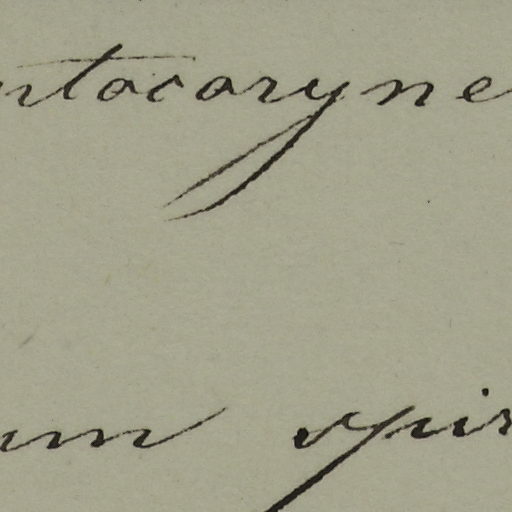 ntocaryne
um spir